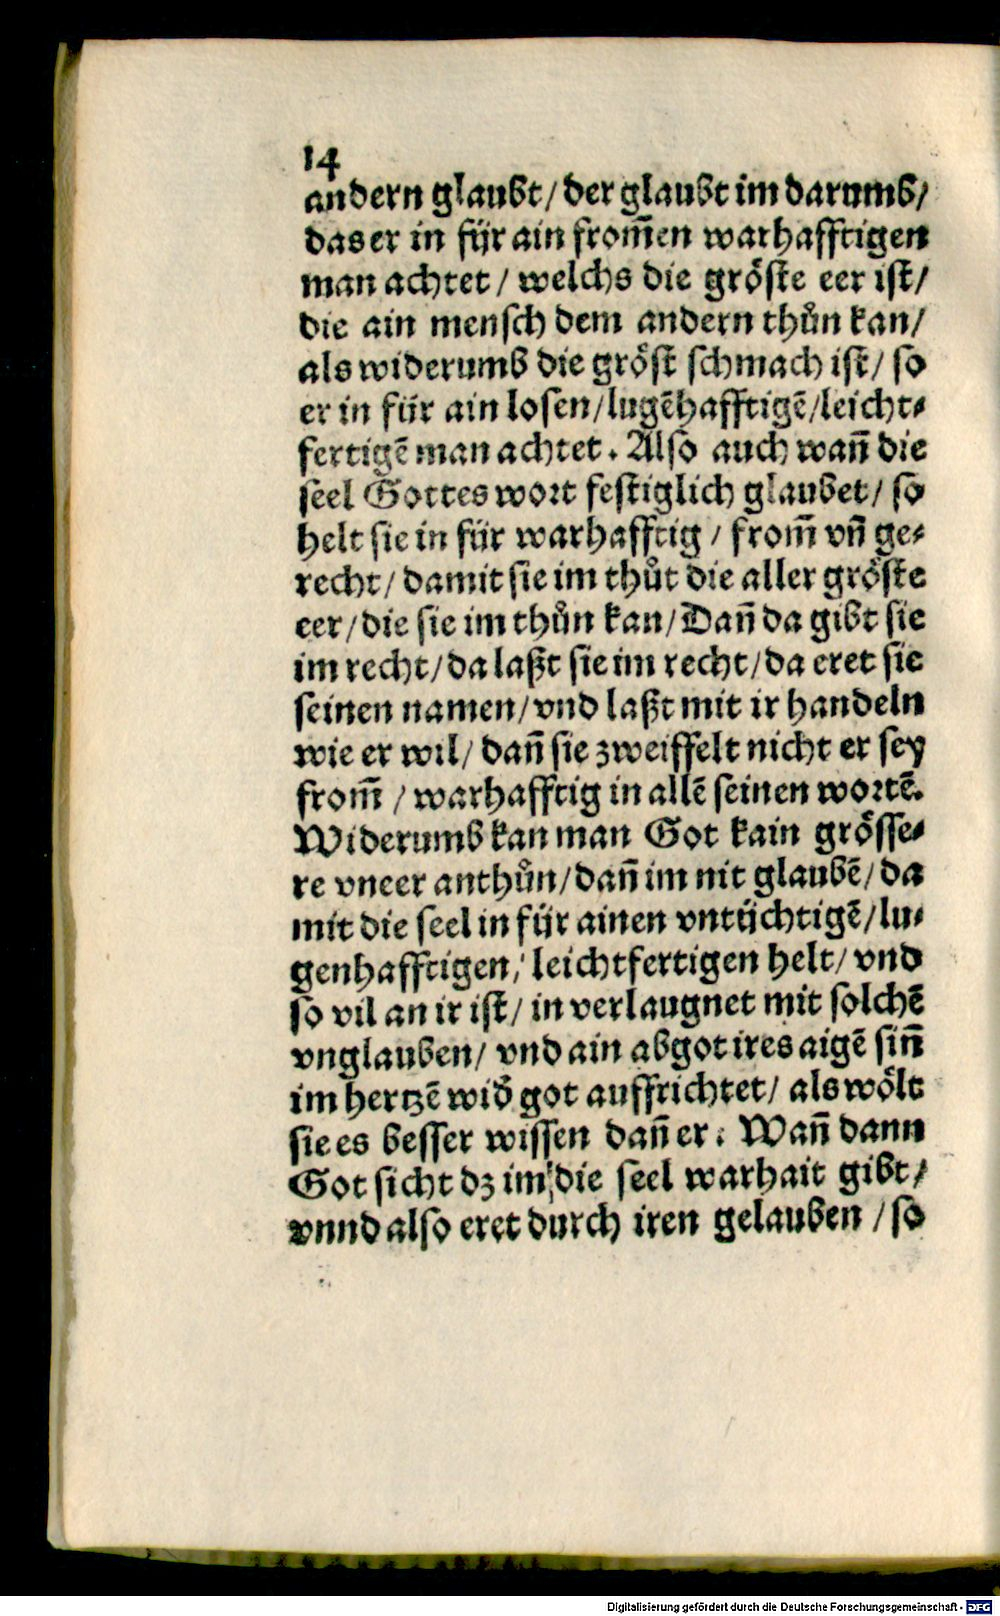 14
andern glaubt/ der glaubt im darumb/
das er in für ain from̃en warhafftigen
man achtet/ welchs die gröste eer ist/
die ain mensch dem andern thůn kan/
als widerumb die gröst schmach ist/ so
er in für ain losen/lugẽhafftigẽ/leicht⸗
fertigẽ man achtet. Also auch wañ die
seel Gottes wort festiglich glaubet/ so
helt sie in für warhafftig/ from̃ vñ ge⸗
recht/ damit sie im thůt die aller gröste
eer/die sie im thůn kan/Dañ da gibt sie
im recht/da laßt sie im recht/da eret sie
seinen namen/vnd laßt mit ir handeln
wie er wil/ dañ sie zweiffelt nicht er sey
from̃ / warhafftig in allẽ seinen wortẽ.
Widerumb kan man Got kain grösse⸗
re vneer anthůn/dañ im nit glaubẽ/da
mit die seel in für ainen vntüchtigẽ/lu⸗
genhafftigen/ leichtfertigen helt/ vnd
so vil an ir ist/ in verlaugnet mit solchẽ
vnglauben/ vnd ain abgot ires aigẽ siñ
im hertzẽ wid̃ got auffrichtet/ als wölt
sie es besser wissen dañ er. Wañ dann
Got sicht dz im die seel warhait gibt/
vnnd also eret durch iren gelauben /so
Digitalisierung gefördert durch die Deutsche Forschungsgemeinschaft - DFG